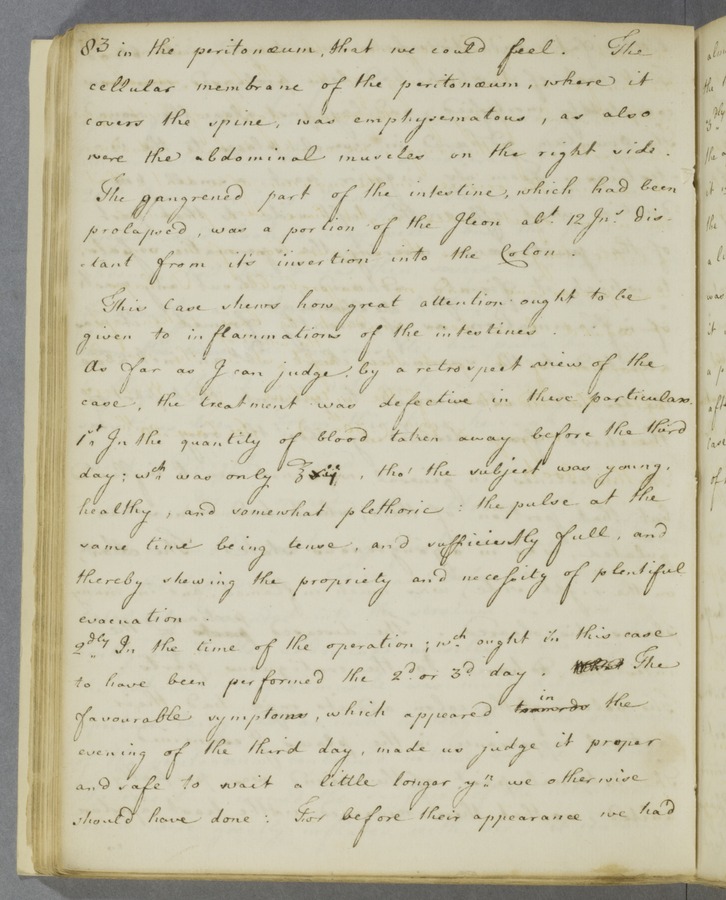 83 in the peritonæum, that we could feel. The
cellular membrane of the peritonæum, where it
covers the spine, was emphysematous, as also
were the abdominal muscles on the right side.
The gangrened part of the intestine, which had been
prolapsed, was a portion of the Ileon abt. 12 Ins. dis-
-tant from its insertion into the Colon.
This Case shews how great attention ought to be
given to inflammations of the intestines.
As far as I can judge, by a retrospect view of the
case, the treatment was defective in these particulars.
1st. In the quantity of blood taken away before the third
day; wch. was only ℥xij, tho' the subject was young,
healthy, and somewhat plethoric: the pulse at the
same time being tense, and sufficiently full, and
thereby shewing the propriety and necessity of plentiful
evacuation.
2dly. In the time of the operation; wch. ought in this case
to have been performed the 2d. or 3d. day. The
favourable symptoms, which appeared in the
evening of the third day, made us judge it proper
and safe to wait a little longer yn. we otherwise
should have done: For before their appearance we had